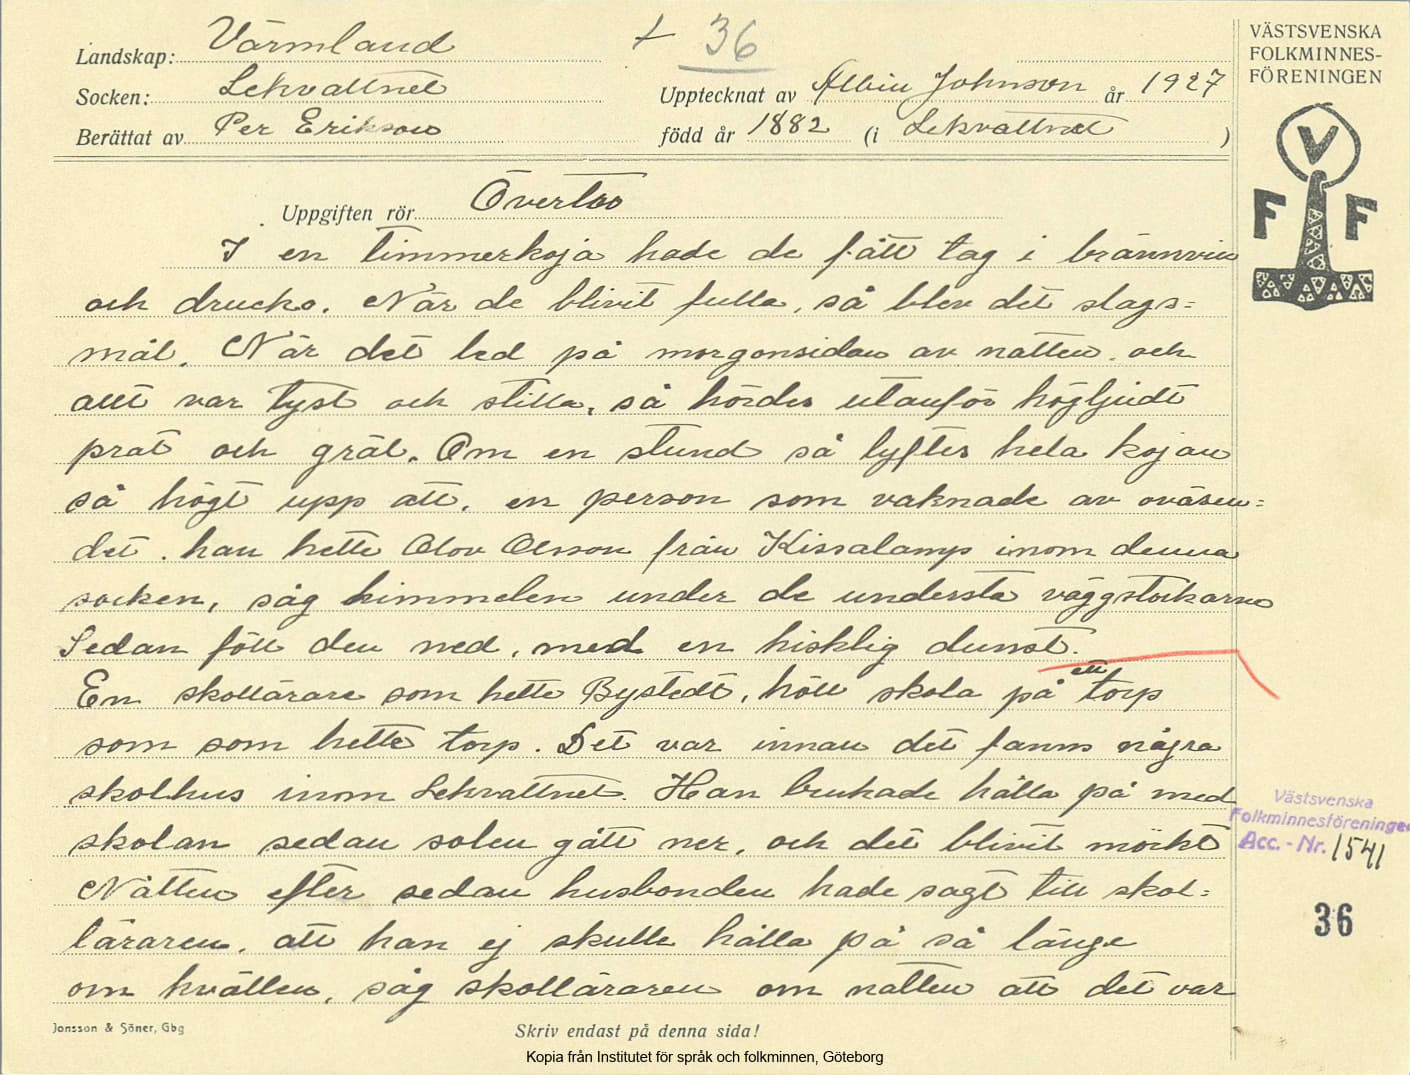 Landskap: Värmland
+ 36
VÄSTSVENSKA
FOLKMINNES-
FÖRENINGEN
Socken: Lekvattnet
Upptecknat av Albin Johnson år 1927
Berättat av Per Erikson
född år 1882 (i Lekvattnet )
V
F F
Uppgiften rör Övertro
I en timmerkoja hade de fått tag i brännvin
och drucko. När de blivit fulla, så blev det slags=
mål. När det led på morgonsidan av natten. och
allt var tyst och stilla, så hördes utanför högljudt
prat och gräl. Om en stund så lyftes hela kojan
så högt upp att. en person som vaknade av oväsen=
det. han hette Olov Olsson från Kissalamp inom denna
socken, såg himmelen under de understa väggstockarne
Sedan föll den ned, med en hisklig dunst.
En skollärare som hette Bystedt, höll skola på ett torp
som som hette torp. Det var innan det fanns några
skolhus inom Lekvattnet. Han brukade hålla på med
skolan sedan solen gått ner, och det blivit mörkt
Natten efter sedan husbonden hade sagt till skol=
läraren. att han ej skulle hålla på så länge
om kvällen, såg skolläraren om natten att det var
Västsvenska
Folkminnesföreningen
Acc.-Nr. 1541
36
Jonsson & Söner, Gbg
Skriv endast på denna sida!
Kopia från Institutet för språk och folkminnen, Göteborg